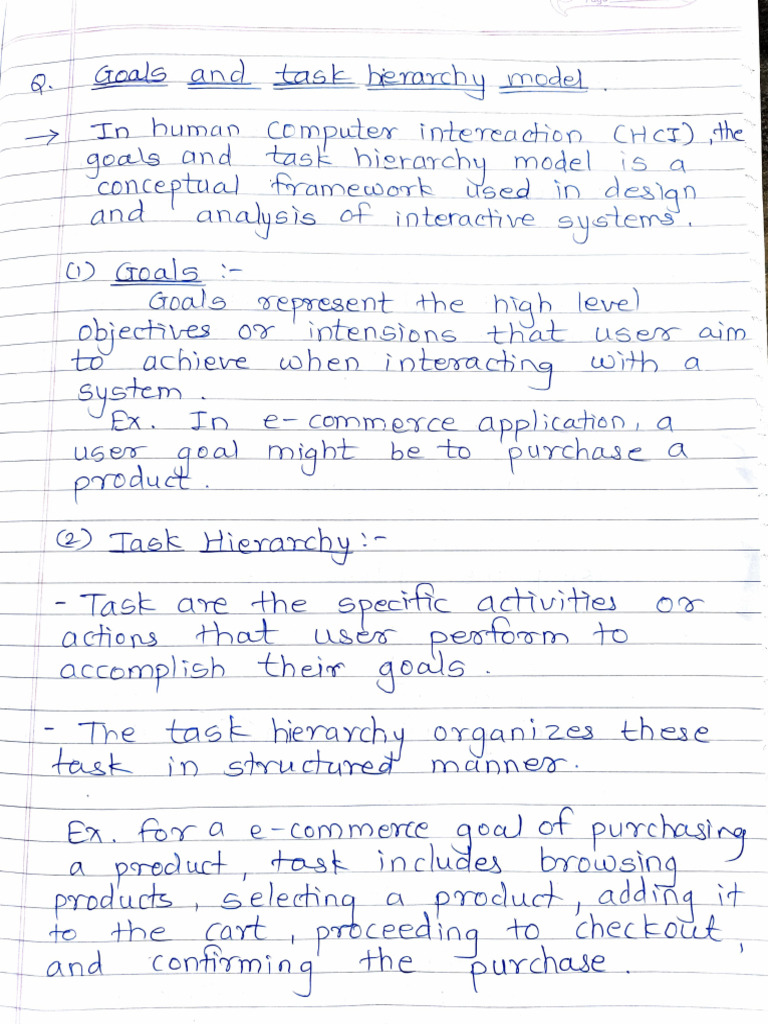 Q. Goals and task hierarchy model.
→ In human computer intereaction (HCI), the
goals and task hierarchy model is a
conceptual framework used in design
and analysis of interactive systems.
(1) Goals :-
Goals represent the high level
objectives or intensions that user aim
to achieve when interacting with a
system.
Ex. In e-commerce application, a
user goal might be to purchase a
product.
(2) Task Hierarchy :-
- Task are the specific activities or
actions that user perform to
accomplish their goals.
- The task hierarchy organizes these
task in structured manner.
Ex. for a e-commerce goal of purchasing
a product, task includes browsing
products, selecting a product, adding it
to the cart, proceeding to checkout,
and confirming the purchase.